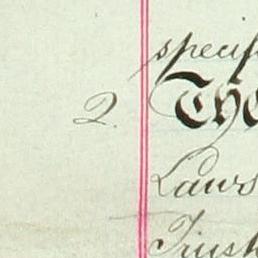 specif
2. The
Laws
Trust